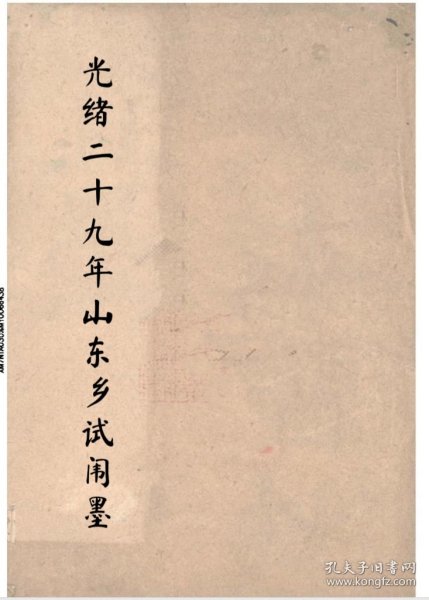 光绪二十九年山东乡试闱墨
孔夫子旧书网
www.kongfz.com